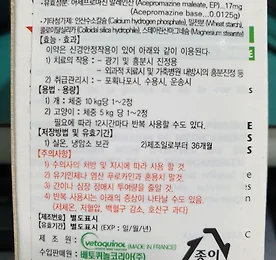 •유효성분: 아세프로마진 말레인산 (Acepromazine maleate, EP)...17mg
(Acepromazine base...0.0125g)
•기타첨가제: 인산수소칼슘(Calcium hydrogen phosphate), 밀전분(Wheat starch),
콜로이달실리카(Colloidal silica hydrophilic), 스테아린산마그네슘(Magnesium stearate)
<효능/효과>
이약은 신경안정작용이 있어 아래와 같이 이용된다.
1) 치료의 작용 : - 광기 및 흥분시 진정용
- 외과적 치료시 및 가축병원 내방시의 흥분진정 등
2) 취급관리시 : - 포획나포시, 수용시, 운송시
<용법·용량>
1) 개 : 체중 10 kg당 1~2정
2) 고양이 : 체중 5 kg 당 1~2정
필요에 따라 상기마다 반복 사용할 수도 있다.
[저장방법 및 유효기간]
1) 실온, 냉암소 보관 2)제조일로부터 36개월
[주의사항]
1) 수의사의 처방 및 지시에 따라 사용 할 것.
2) 유기인제나 염산 푸로카인과 혼용치 말것.
3) 간이나 심장 장애시 투여량을 줄일 것.
4) 반복 사용시는 아래의 증상이 나타날 수도 있음.
(저체온, 저혈압, 백혈구 감소, 호산구 과다)
[제조번호] 별도표시
[유효기간] 별도표시 (EXP : 일/월/년)
제 조 원 : vetoquinol (MADE IN FRANCE)
수입판매원 : 베토퀴놀코리아(주)
종이
E
S
S